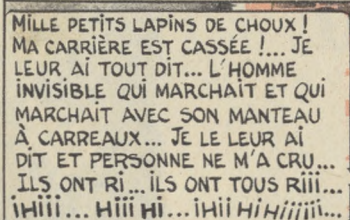 MILLE PETITS LAPINS DE CHOUX !
MA CARRIÈRE EST CASSÉE !... JE
LEUR AI TOUT DIT... L'HOMME
INVISIBLE QUI MARCHAIT ET QUI
MARCHAIT AVEC SON MANTEAU
À CARREAUX... JE LE LEUR AI
DIT ET PERSONNE NE M'A CRU...
ILS ONT RI... ILS ONT TOUS RIII...
iHiii... Hiii Hi... iHii HiHiiiii...